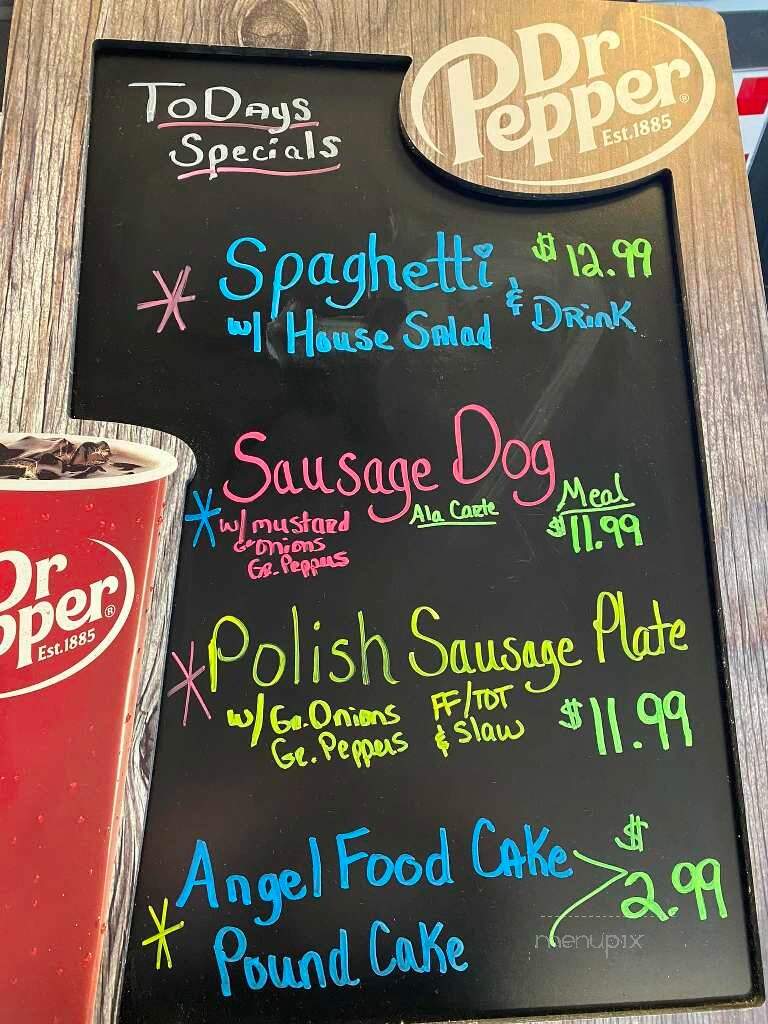 ToDays
Specials
Dr
Pepper®
Est.1885
* Spaghetti $12.99
w/ House Salad & Drink
* Sausage Dog
w/ mustard Ala Carte Meal
Gr Onions $11.99
Gr. Peppers
* Polish Sausage Plate
w/ Gr. Onions FF/TOT $11.99
Gr. Peppers & Slaw
Angel Food Cake $
2.99
* Pound Cake
Dr
pper®
Est.1885
menupix